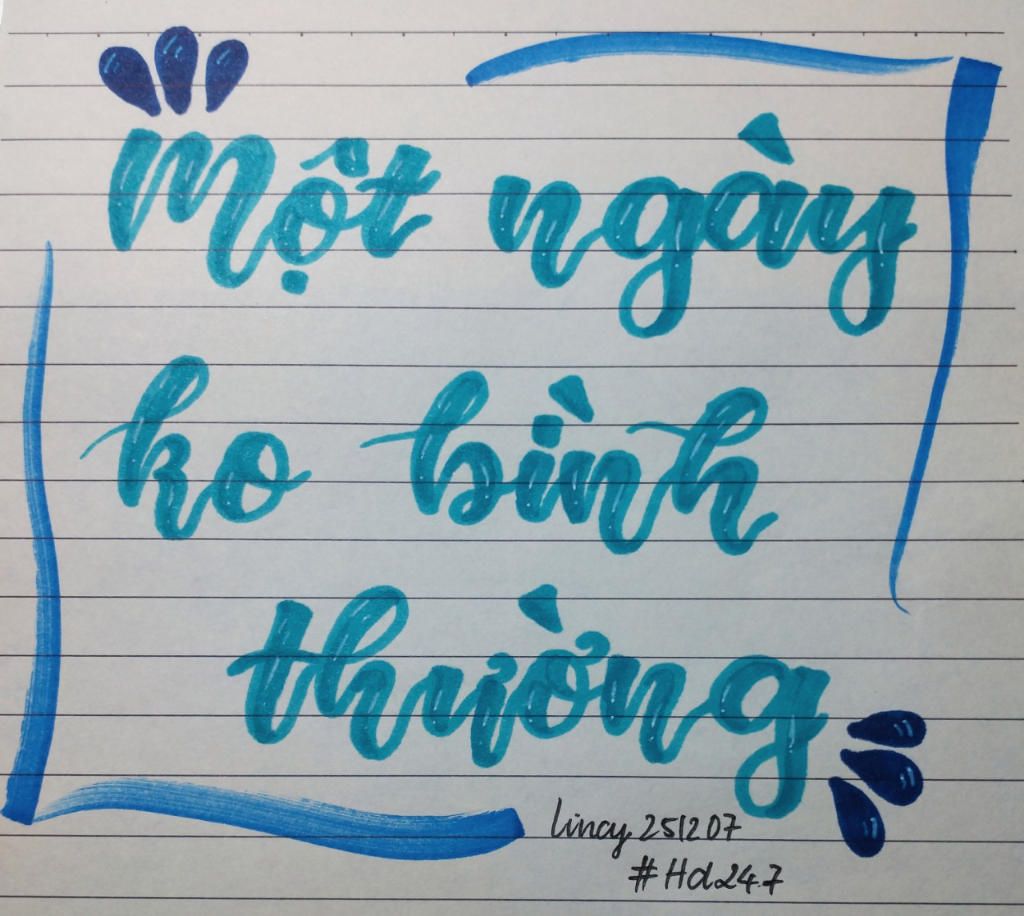 Một ngày
ko bình
thường
lincy 251207
#Hd24.7